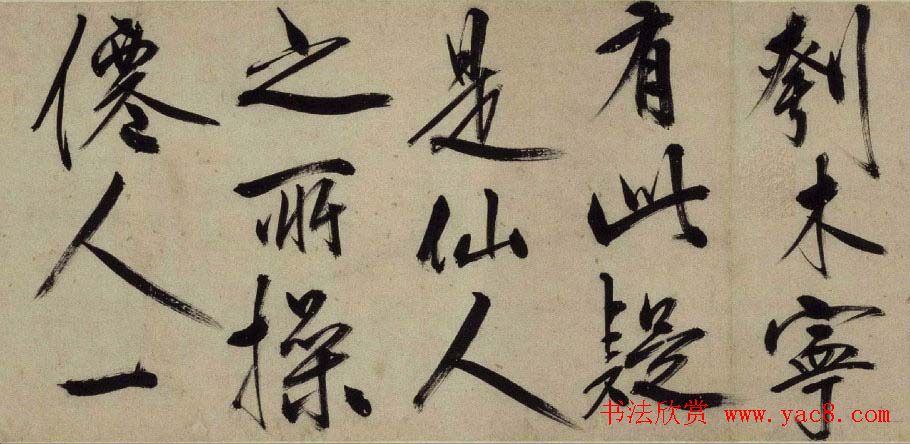 刳木寧
有此疑
是仙人
之所操
僊人一
书法欣赏 www.yac8.com